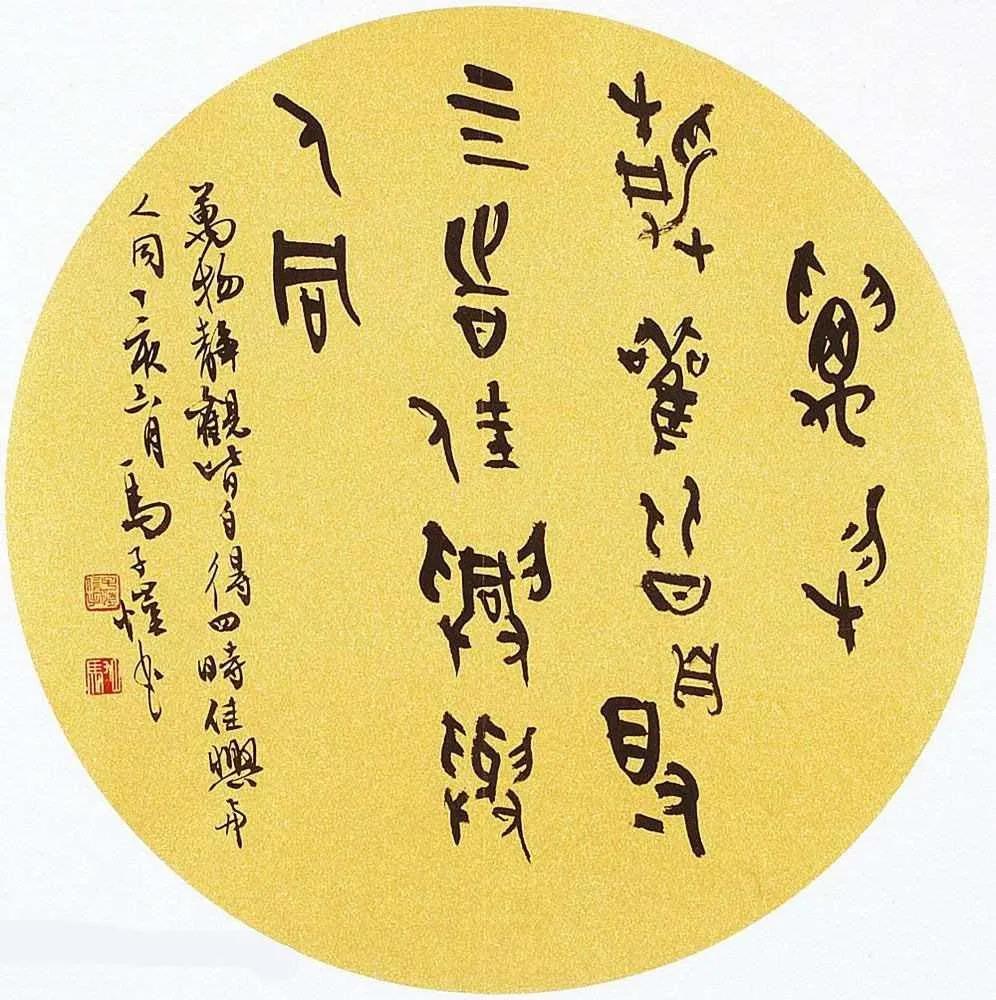 萬物
靜觀皆自得
四時佳興與
人同
萬物靜觀皆自得四時佳興与
人同丁亥三月馬子愷书